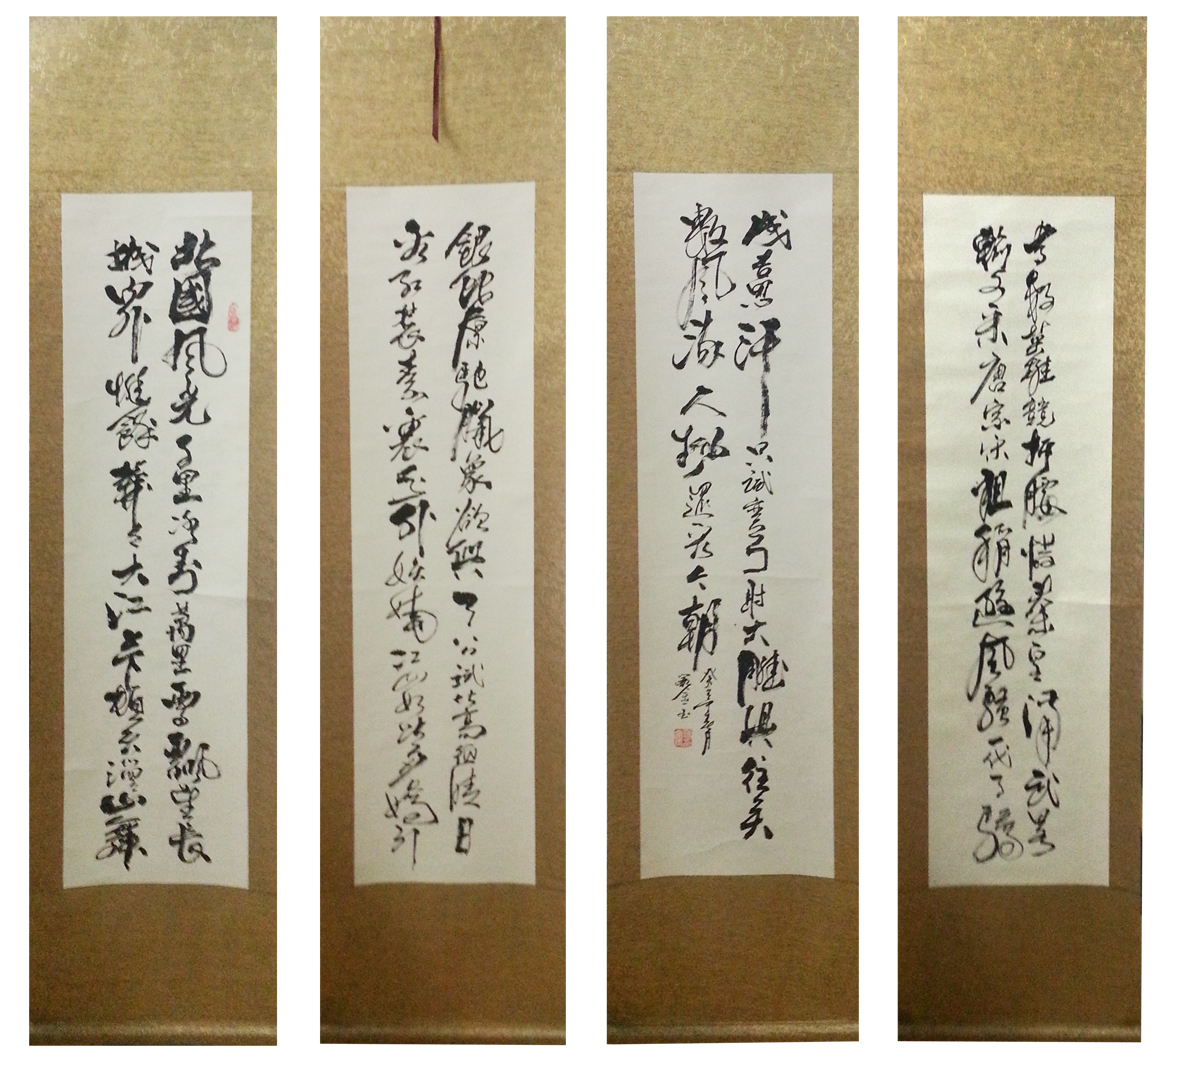 北國風光千里冰封萬里雪飄望長
城內外惟餘莽々大江上下頓失滔々山舞
銀蛇原馳蠟象欲與天公試比高須晴日
看紅裝素裹分外妖嬈江山如此多嬌引
無數英雄競折腰惜秦皇漢武略
輸文采唐宗宋祖稍遜風騷一代天驕
成吉思汗只識彎弓射大雕俱往矣
數風流人物還看今朝